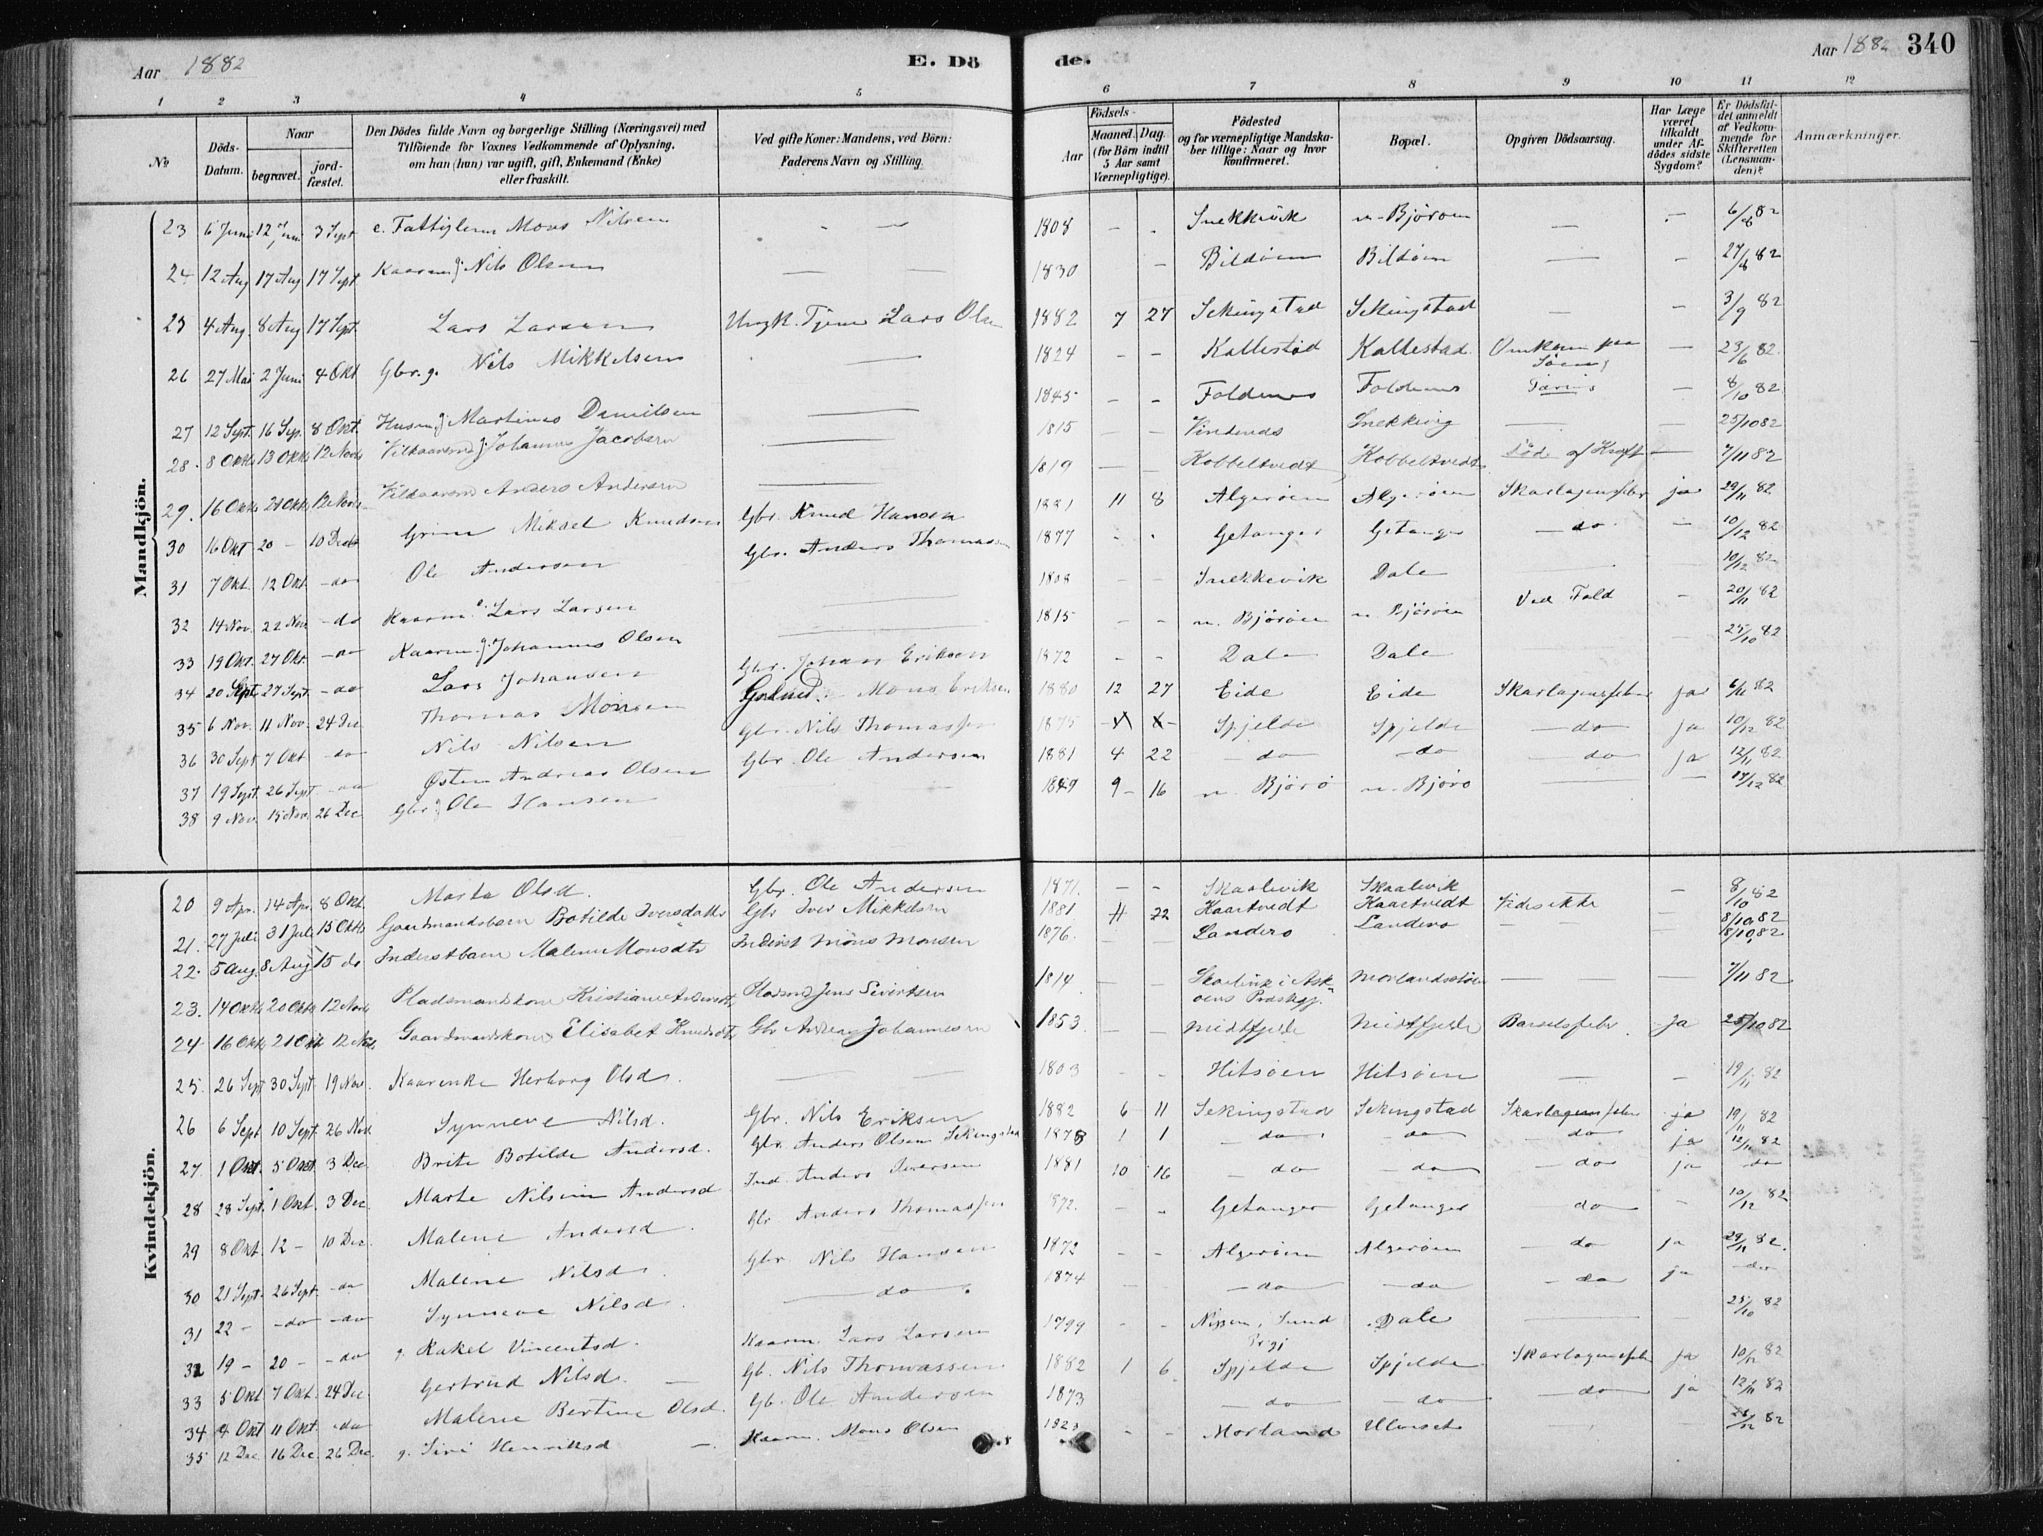 Aar 1882 E. Dö de. Aar 1882 340
1 2 3 4 5 6 7 8 9 10 11 12
No
Döds-Datum.
Naar
begravet.
jord-fæstet.
Den Dödes fulde Navn og borgerlige Stilling (Næringsvei) med
Tilföiende for Voxnes Vedkommende af Oplysning,
om han (hun) var ugift, gift, Enkemand (Enke)
eller fraskilt.
Ved gifte Koner: Mandens, ved Börn:
Faderens Navn og Stilling.
Födsels-
Aar
Maaned. Dag.
(for Börn indtil
5 Aar samt
Værnepligtige).
Födested
og for værnepligtige Mandska-
ber tillige: Naar og hvor
konfirmeret.
Bopæl.
Opgiven Dödsaarsag.
Har Læge
været
tilkaldt
under Af-
dödes sidste
Sygdom?
Er Dödsfal-
det anmeldt
af Vedkom-
mende for
Skifteretten
(Lensman-
den)?
Anmærkninger.
Mandkjön.
23 6 Juni 12 Juni 3 Sept e. Fattiglem Mons Nilsen — 1808 - - Snekkevik n. Bjørøen — - 6/8 82
24 12 Aug 17 Aug 17 Sept Kaarm. g. Nils Olsen — 1830 - Bildøen Bildøen — - 27/8 82
25 4 Aug 8 Aug 17 Sept. Lars Larsen Ungk. Tjener Lars Olsen 1882 7 27 Sekingstad Sekingstad — - 3/9 82
26 27 Mai 2 Juni 4 Okt Gbr. g. Nils Mikkelsen — 1824 - - Kallestad Kallestad Omkom paa Søen - 23/6 82.
27 12 Sept. 16 Sep. 8 Okt. Husm. g. Martinus Danielsen — 1845 - - Foldenes Foldenes Tæring - 8/10 82
28. 8 Oktb 13 Oktb 12 Novb Vilkaarsmd g. Johannes Jacobsen — 1815 Vindenes Snekkevig — - 25/10 82
29. 16 Oktb 21 Oktb 12 Novb Vilkaarsmd Anders Andersen — 1819 - - Kobbeltvedt Kobbeltvedt Død af Kræft - 7/11 82
30 16 Okt 20 - 10 Decb Grim Mikael Knudsen Gbr. Knud Hansen 1881 11 8 Algerøen Algerøen Skarlagensfeber ja 29/11 82
31 7 Okt. 12 Okt. - do Ole Andersen Gbr. Anders Thomassen 1877 - - Getanger Getanger - do - - 10/12 82
32 14 Nov. 22 Nov - do Kaarm. e. Lars Larsen — 1808 - - Snekkevik Dale — 10/12 82
33 19 Okt. 27 Okt. - do Kaarm. g. Johannes Olsen — 1815 - - n. Bjørøen n. Bjørøen Ved Fald - 20/11 82
34 20 Sept. 27 Sept. - do Lars Johansen Gbr. Johan Eriksen 1872 - - Dale Dale 25/10 82
35 6 Nov. 11 Nov. 24 Dec Thomas Monsen Mons Eriksen 1880 12 27 Eide Eide Skarlagensfeber ja 6/11 82
36 30 Sept 7 Okt - do Nils Nilsen Gbr. Nils Thomassen 1875 Spjelde Spjelde - do ja 10/12 82
37 19 Sept. 26 Sept - do Østen Andreas Olsen Gbr. Ole Andersen 1881 4 22 - do - do - do ja 12/11 82
38 9 Nov. 15 Nov. 26 Dec Gbr. g. Ole Hansen 9 - 16 n. Bjørø n. Bjørø — - 17/12 82
Kvindekjön.
20 9 Apr. 14 Apr. 8 Okt. Marta Olsd. Gbr. Ole Andersen 1871. - - Skaalevik Skaalevik - 8/10 82
21. 27 Juli 31 Juli 15 Oktb Gaardmandsbarn Botilde Iversdatter Gbr Iver Mikkelsen 1881 22 Kaartvedt Kaartvedt Vides ikke - 8/10 82
22. 5 Aug. 8 Aug 15 do Inderstbarn Malene Monsdtr Inderst Mons Monsen 1876. - - Landero Landero — - 18/10 82
23. 14 Oktb 20 Oktb 12 Novb Pladsmandskone Kristiane Andersdtr Pladsmd Jens Sivertsen 1814 - - Skarlevik i Ask-øens Præstegj. Morlandsstøen — - 7/11 82
24 16 Oktb 21 Okt 12 Novb Gaardmandskone Elisabet Knudsdtr Gbr Andreas Johannessen 1853. - - Midtfjelde Midtfjelde Barselsfeber. ja 25/10 82
25. 26 Sept 30 Sept. 19 Nov. Kaarenke Herborg Olsd. — 1803 - - Hitsøen Hitsøen — - 19/11 82
26 6 Sept 10 Sept. 26 Nov. Synneve Nilsd. Gbr. Nils Eriksen 1882 6 11 Sekingstad Sekingstad Skarlagensfeber ja 19/11 82
27. 1 Okt. 5 Okt. 3 Dec. Brite Botilde Andersd. Gbr. Anders Olsen Sekingstad 1878 1 1 - do - do - do ja 12/11 82
28 28 Sept. 1 Okt. 3 Dec. Marte Nilsine Andersd Ind. Anders Iversen 1881 10 16 - do - do - do ja - do
29 8 Okt. 12 - 10 Dec. Malene Andersd. Gbr. Anders Thomassen 1872. - - Getanger Getanger do - 10/12 82
30 21 Sept. 26 Sept. - do Malene Nilsd. Gbr. Nils Hansen 1872 Algerøen Algerøen - do ja 29/11 82.
31 22 - - do - do Synneve Nilsd. — do — 1874 - - do - do - do ja - do
32 19 - 20 - - do g. Rakel Vincentsd. Kaarm. Lars Larsen 1799 - - Nissen, Sund Prgj Dale — 25/10 82
33 5 Okt 7 Okt. 24 Dec Gertrud Nilsd. — Gb. Nils Thomassen 1882 1 6 Spjelde Spjelde Skarlagensfeber ja 10/12 82
34 4 Okt 11 Okt. - do Malene Bertine Olsd. Gb. Ole Andersen 1873 - do - do - do ja 12/11 82
35 12 Dec 16 Dec. 26 Dec. g. Siri Henriksd — Kaarm. Mons Olsen - - Morland Ulveset 82